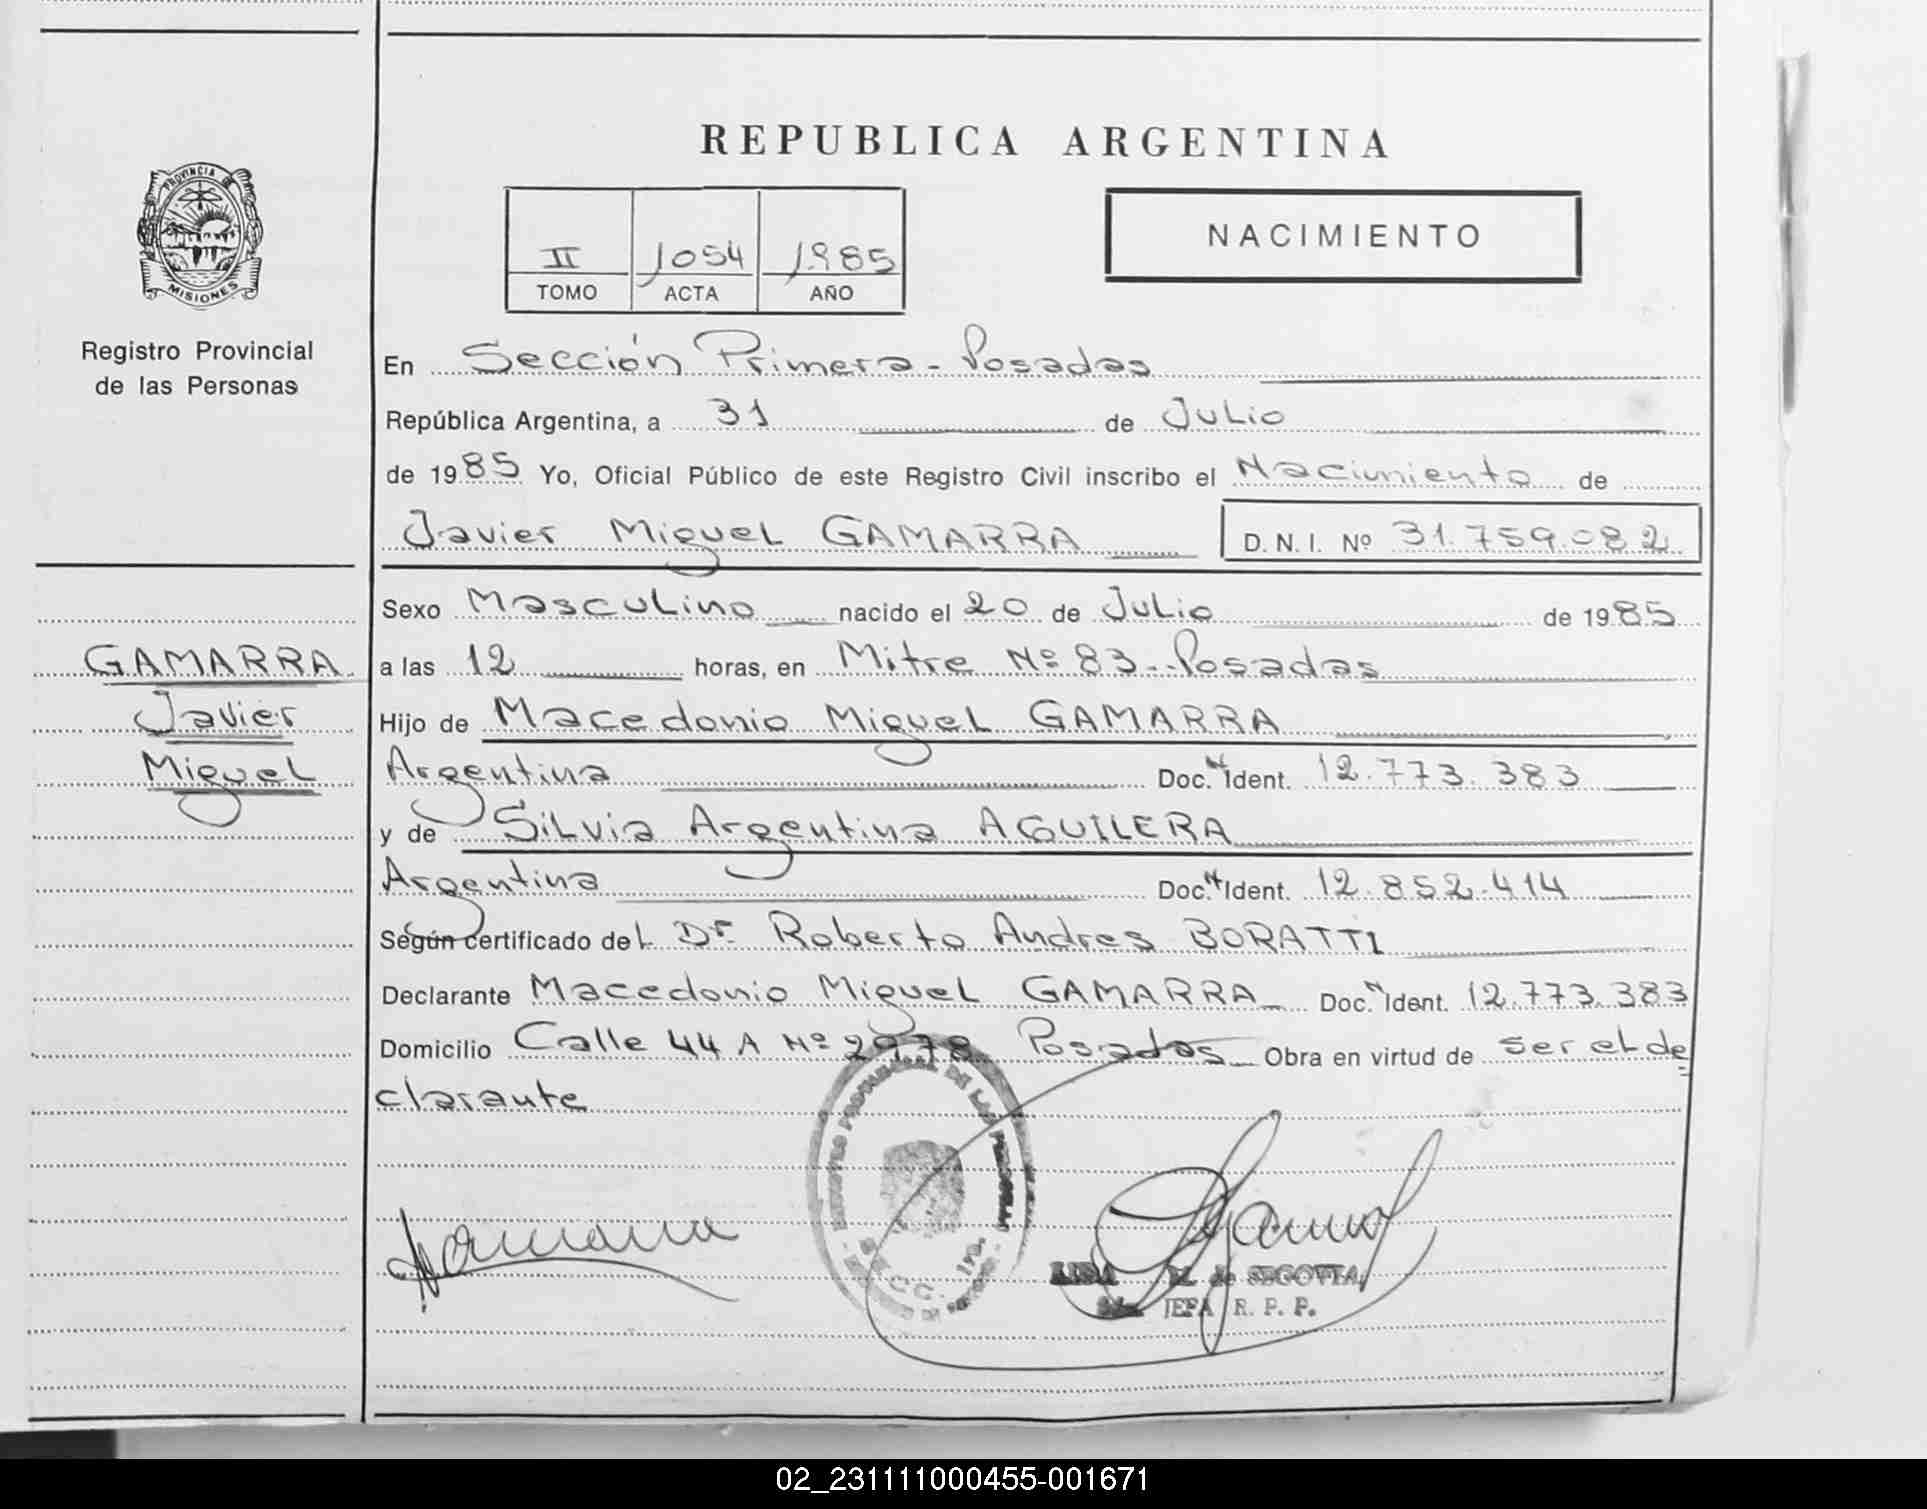 REPUBLICA ARGENTINA
PROVINCIA DE
MISIONES
Registro Provincial
de las Personas
II 1054 1985
TOMO ACTA AÑO
NACIMIENTO
En Sección Primera - Posadas
República Argentina, a 31 de Julio
de 1985 Yo, Oficial Público de este Registro Civil inscribo el Nacimiento de
Javier Miguel GAMARRA D. N. I. Nº 31.759.082
Sexo Masculino nacido el 20 de Julio de 1985
GAMARRA
Javier
Miguel
a las 12 horas, en Mitre Nº 83 - Posadas
Hijo de Macedonio Miguel GAMARRA
Argentina Doc. N Ident. 12.773.383
y de Silvia Argentina AGUILERA
Argentina Doc. N Ident. 12.852.414
Según certificado del Dr. Roberto Andres BORATTI
Declarante Macedonio Miguel GAMARRA Doc. N Ident. 12.773.383
Domicilio Calle 44 A Nº 2978 Posadas Obra en virtud de ser el de
clarante
PROVINCIAL DE LAS
M. de SEGOVIA
JEFA R. P. P.
02_231111000455-001671